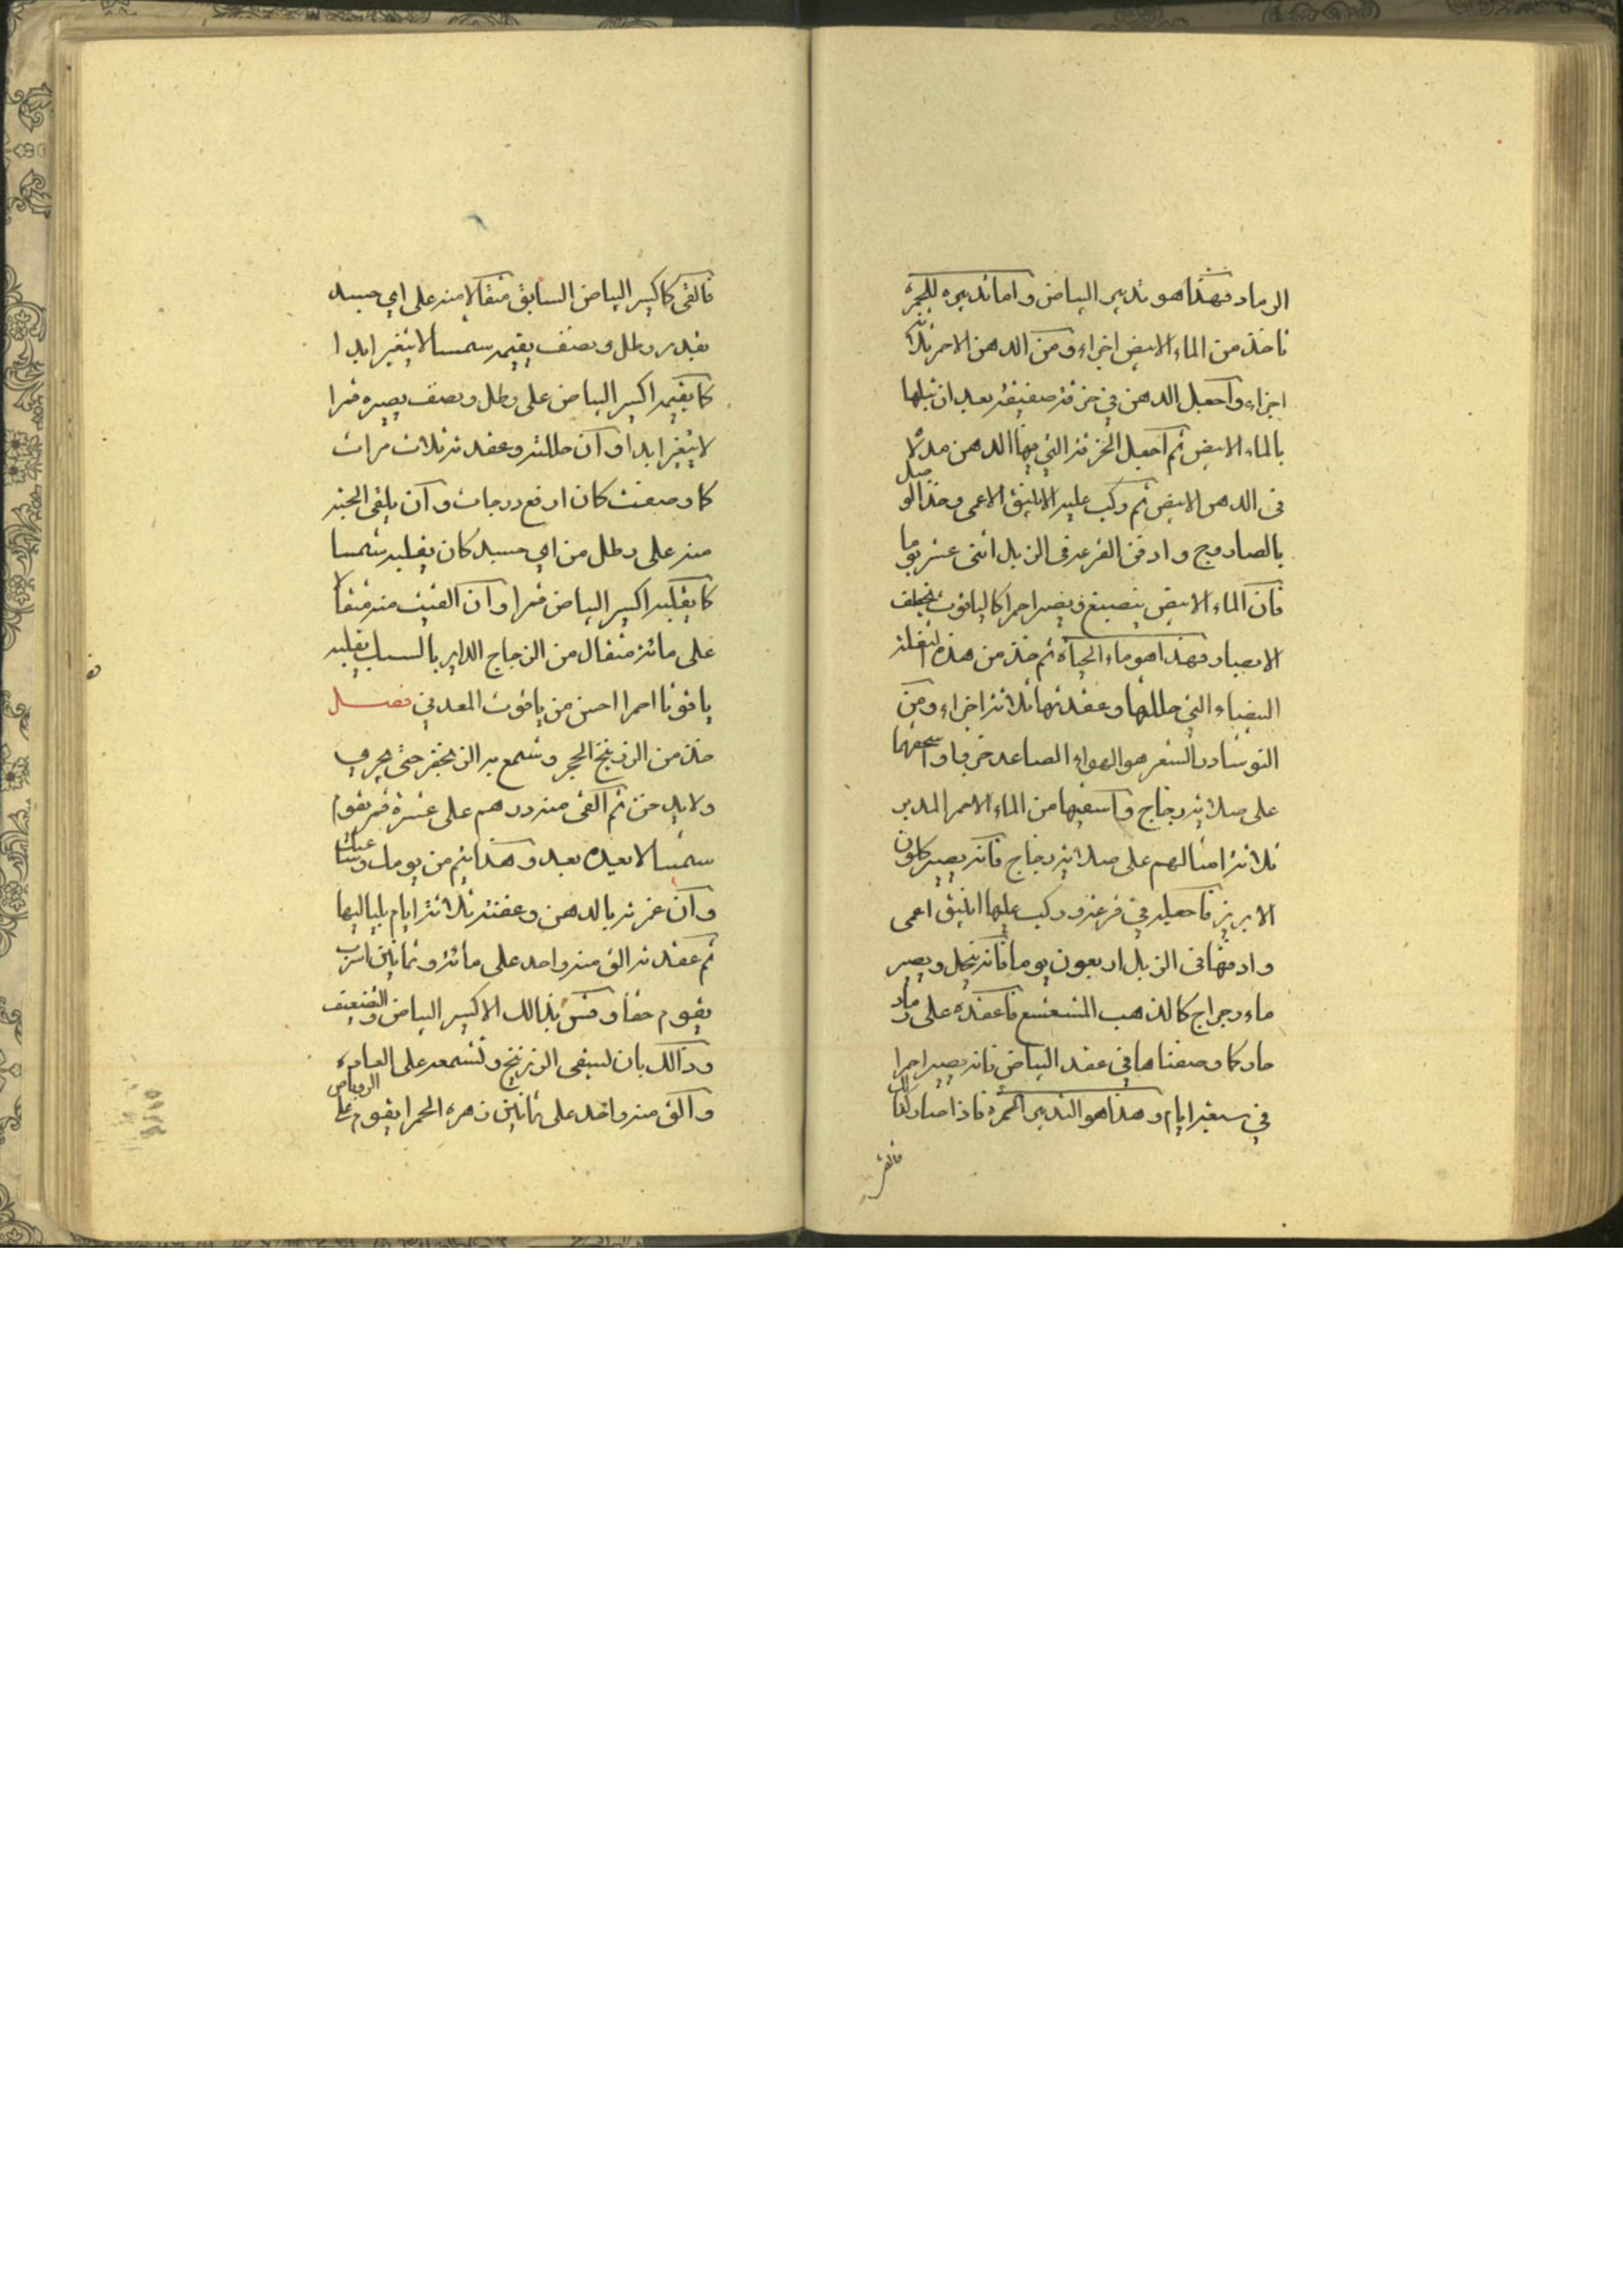 الرماد فهذا هو تدبير البياض واما تدبيره للحمرة
تاخذ من الماء الابيض اجزاء ومن الدهن الاحمر ثلاثة
اجزاء واجعل الدهن في خرقة صفيقة بعد ان تبلها
بالماء الابيض ثم اجعل الخرقة التي فيها الدهن مدلا
في الدهن الابيض ثم ركب عليه الانبيق الاعمى وخذ الوصل
بالصاروج وادفن القرعة في الزبل اثنى عشر يوما
فان الماء الابيض ينصبغ ويصير احمرا كالياقوت يخطف
الابصار فهذا هو ماء الحياة ثم خذ من هذه
البيضاء التي حللتها وعقدتها ثلاثة اجزاء ومن
النوشادر الشعر هو الهواء الصاعد جزءا واسحقهما
على صلاية زجاج واسقيها من الماء الاحمر المدبر
ثلاثة امثالهم على صلاية زجاج فانه يصير كلون
الابريز فاجعله في قرعة وركب عليها انبيق اعمى
وادفنها في الزبل اربعون يوما فانه ينحل ويصير
ماء رجراج كالذهب المشعشع فاعقده على رماد
حار كما وصفناها في عقد البياض فانه يصير احمرا
في سبعة ايام وهذا هو التدبير الحمرة فاذا صار كذالك
فالقى
فالقى كاكسير البياض السابق مثقالا منه على اي جسد
بقدر رطل ونصف يقيمه شمسا لا يتغير ابدا
كما يقيمه اكسير البياض على رطل ونصف يصيره قمرا
لا يتغير ابدا وان حللته وعقدته ثلاث مرات
كما وصفت كان ارفع درجات وان يلقى الحبة
منه على رطل من اي جسد كان يقلبه شمسا
كما يقلبه اكسير البياض قمرا وان القيت منه مثقالا
على مائة مثقال من الزجاج الداير بالسبك يقلبه
ياقوتا احمرا احسن من ياقوت المعدني فصل
خذ من الزرنيخ الحجر وشمع به الزنجفر حتى يجري
ولا يدخن ثم القى منه درهم على عشرة قمر يقوم
شمسا لا بعيده بعد وهذا يتم من يومك
وان غمرته بالدهن وعفنته ثلاثة ايام بلياليها
ثم عقدته الق منه واحد على مائة وثمانين اسرب
يقوم حقا وقس بذالك الاكسير البياض والضعيف
وذالك بان تسقى الزرنيخ وتشمعه على العادة
والق منه واحد على ثمانين زهرة الحمرا يقوم على الروباص